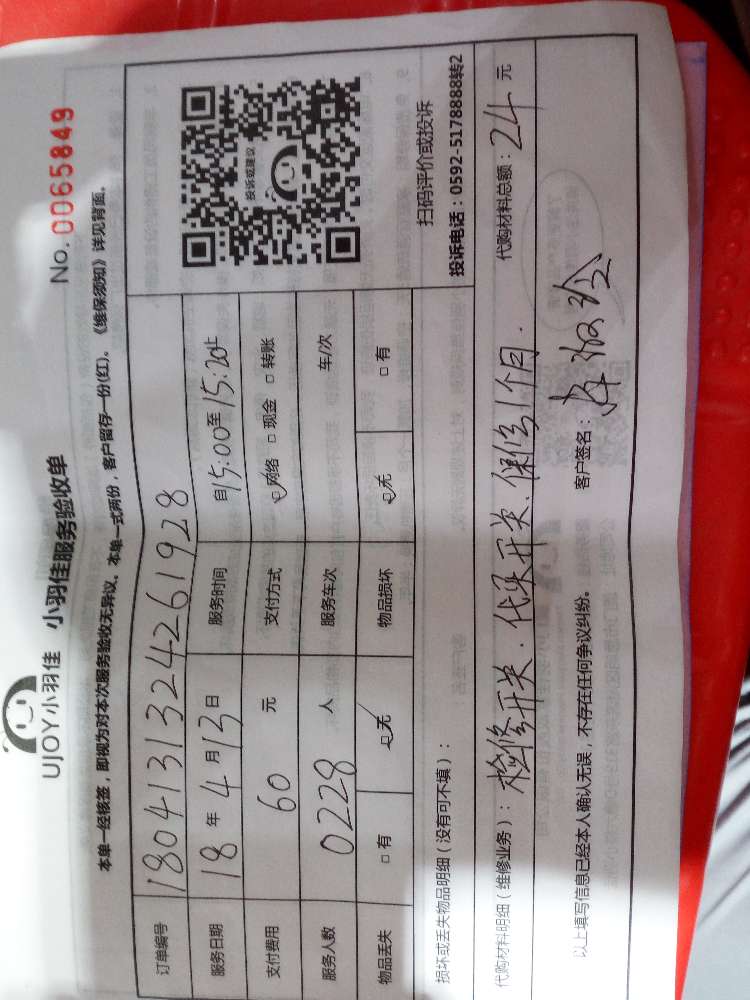 UJOY小羽佳 小羽佳服务验收单
No. 0065849
本单一经核签，即视为对本次服务验收无异议、本单一式两份，客户留存一份(红)。《维保须知》详见背面。
订单编号 180413132424261928
服务日期 18 年 4 月 13 日 服务时间 自15:00至15:20止
支付费用 60 元 支付方式 ☑网络 □现金 □转账
服务人数 0228 人 服务车次 车/次
物品丢失 □有 ☑无 物品损坏 ☑无 □有
投诉或建议
扫码评价或投诉
投诉电话：0592-5178888转2
损坏或丢失物品明细（没有可不填）：
代购材料明细（维修业务）：检修开关.代买开关.保修1个月. 代购材料总额：24 元
以上填写信息已经本人确认无误，不存在任何争议纠纷。 客户签名：